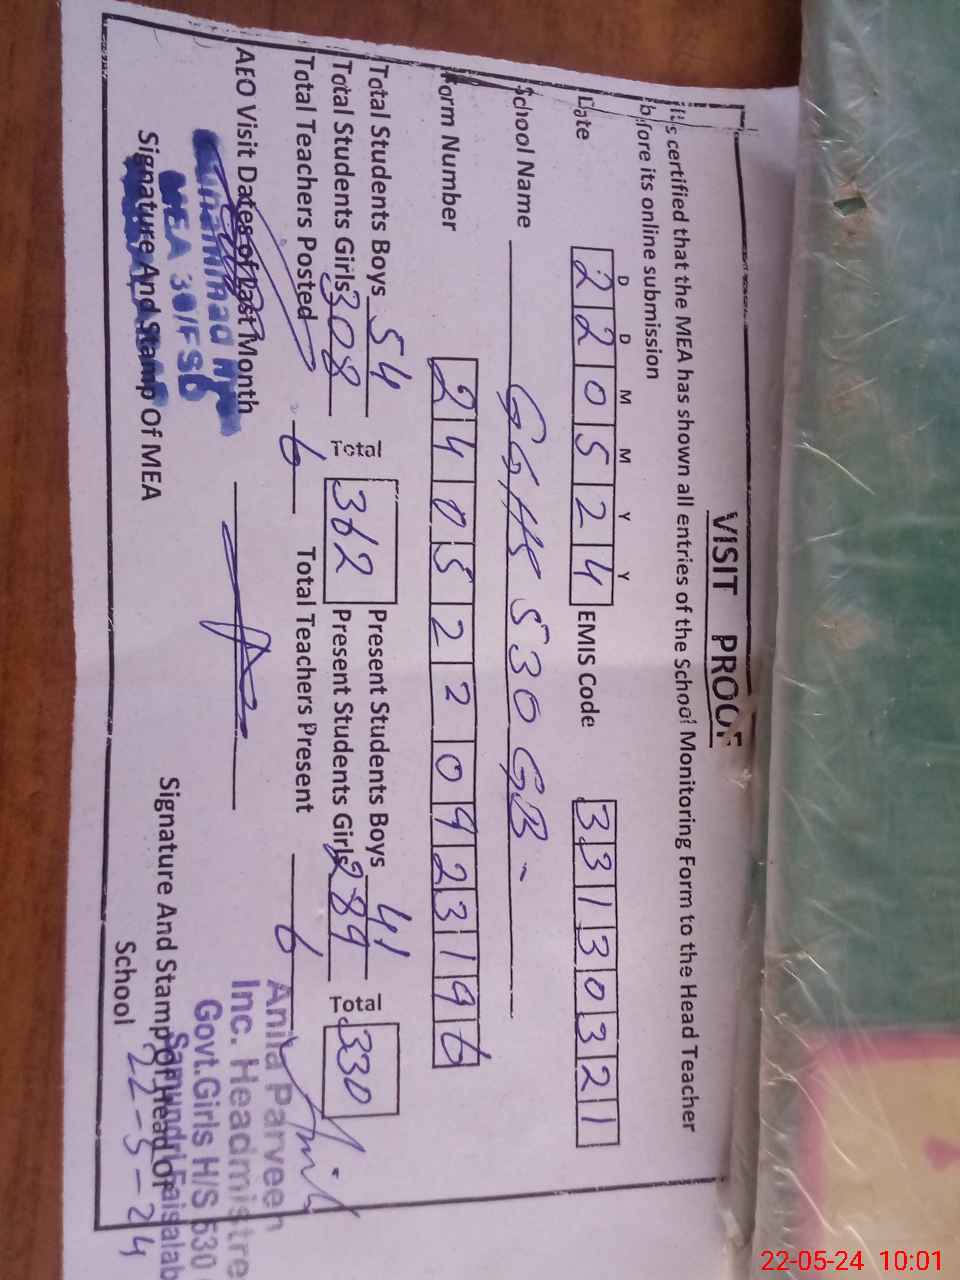 VISIT PROOF
It is certified that the MEA has shown all entries of the School Monitoring Form to the Head Teacher
before its online submission
D D M M Y Y
Date 220524 EMIS Code 33130321
School Name GGHS 530 GB
Form Number 2405220923196
Total Students Boys 54 Total Present Students Boys 41 Total
Total Students Girls 308 362 Present Students Girls 289 330
Total Teachers Posted 6 Total Teachers Present 6
AEO Visit Dates of Last Month
MEA 30/FSD
Signature And Stamp Of MEA
Anila Parveen
Inc. Headmistre
Govt.Girls H/S 530
Samundri Faisalab
Signature And Stamp of Head of
School 22-5-24
22-05-24 10:01